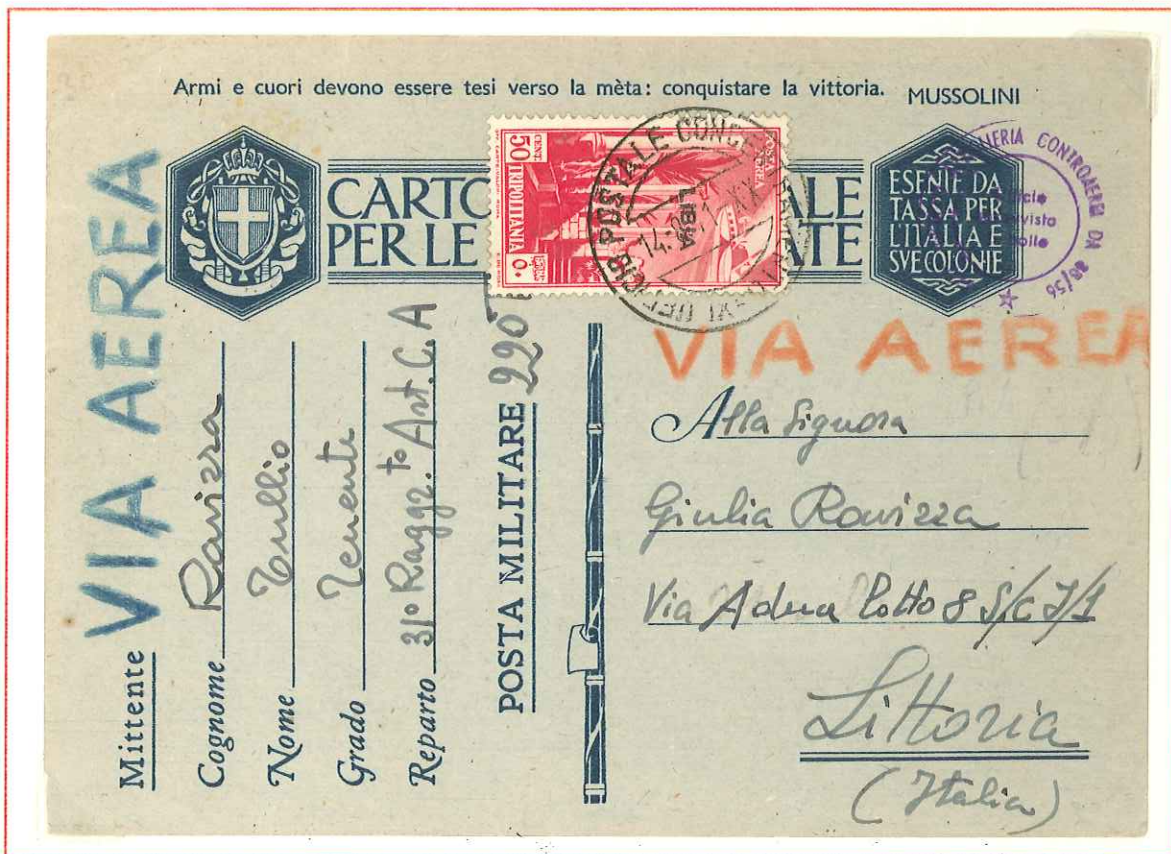 Armi e cuori devono essere tesi verso la mèta: conquistare la vittoria. MUSSOLINI
CARTO LE
PER LE TE
ESENTE DA
TASSA PER
L'ITALIA E
SVE COLONIE
POSTA AEREA
CENT. 50 TRIPOLITANIA
LIBIA
POSTALE CONCE
14
CONTROAEREI DA 88/56
VIA AEREA
VIA AEREA
Mittente
Cognome Ravizza
Nome Tullio
Grado Tenente
Reparto 31° Raggr.to Art. C. A
POSTA MILITARE 220
Alla Signora
Giulia Ravizza
Via Adua Lotto 8 S/C I/1
Littoria
(Italia)